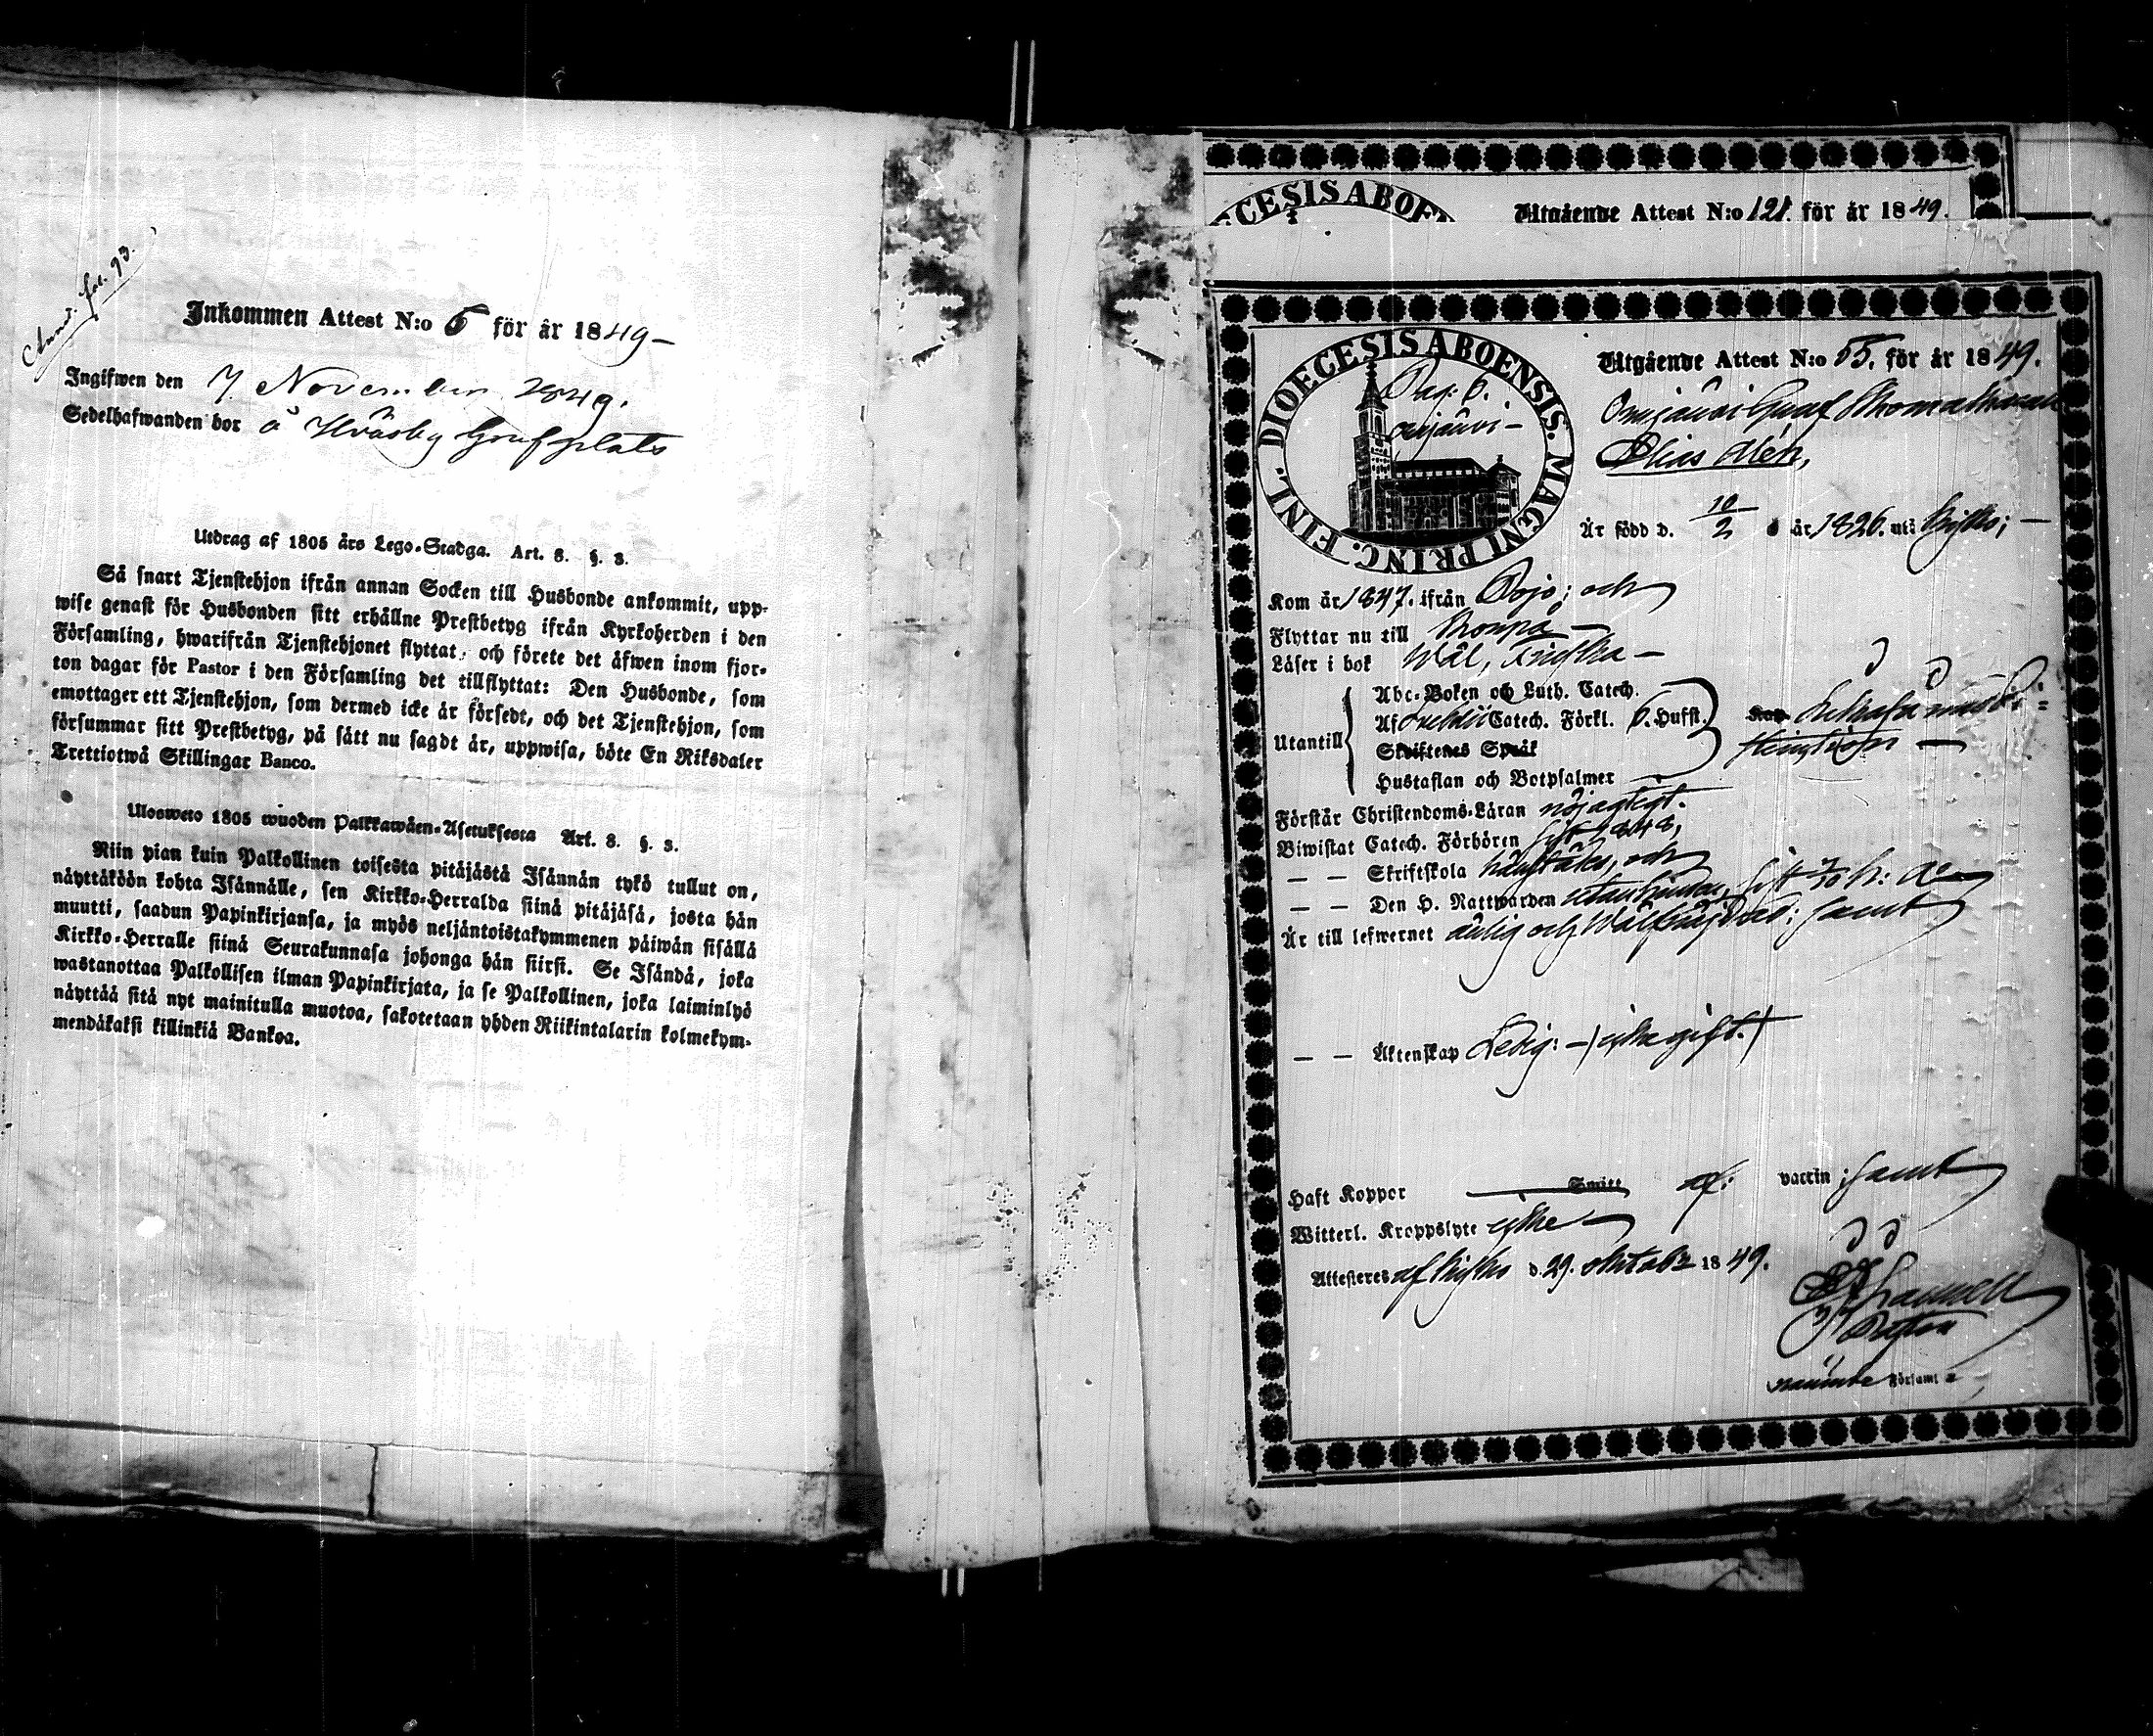 Inkommen Attest N:o 5 för år 1849 –
Ingifwen den 7 November 1849.
Sedelhafwanden bor å Hväsby Grufplats
Utdrag af 1805 års Lego-Stadga. Art. 8. §. 3.
Så snart Tjenstehjon ifrån annan Socken till Husbonde ankommit, upp-
wise genast för Husbonden sitt erhållne Prestbetyg ifrån Kyrkoherden i den
Församling, hwarifrån Tjenstehjonet flyttat; och förete det äfwen inom fjor-
ton dagar för Pastor i den Församling det tillflyttat: Den Husbonde, som
emottager ett Tjenstehjon, som dermed icke är försedt, och det Tjenstehjon, som
försummar sitt Prestbetyg, på sätt nu sagdt är, uppwisa, böte En Riksdaler
Trettiotwå Skillingar Banco.
Ulosweto 1805 wuoden Palkkawäen-Asetuksesta Art. 8. §. 3.
Niin pian kuin Palkollinen toisesta pitäjästä Isännän tykö tullut on,
näyttäköön kohta Isännälle, sen Kirkko-Herralda siinä pitäjäsä, josta hän
muutti, saadun Papinkirjansa, ja myös neljäntoistakymmenen päiwän sisällä
Kirkko-Herralle siinä Seurakunnasa johonga hän siirsi. Se Isändä, joka
wastanottaa Palkollisen ilman Papinkirjata, ja se Palkollinen, joka laiminlyö
näyttää sitä nyt mainitulla muotoa, sakotetaan yhden Riikintalarin kolmekym-
mendäkaksi killinkiä Bankoa.
CESIS ABOEN
Utgående Attest N:o 121. för år 1849.
DIOECESIS ABOENSIS. MAGNI PRINC. FINL.
Pag: 6.
Ojanvi –
Utgående Attest N:o 55. för år 1849.
Elias Alén,
Är född d. 10/2 år 1826. uti Kisko; –
Kom år 1847. ifrån Pojo; och
Flyttar nu till
Läser i bok Wäl,
Utantill
Abc-Boken och Luth. Catech.
Af Catech. Förkl. 6. Hufst.
Skriftenes Språk
Hustaflan och Botpsalmer
Förstår Christendoms-Läran nöjagtigt.
Biwistat Catech. Förhören sist 1848,
– – Skriftskola och
– – Den H. Nattwarden
Är till lefwernet ärlig och Wälfrejdad; samt
– – Äktenskap Ledig: – (icke gift.)
Haft Koppor Smitt af: vaccin; samt
Witterl. Kroppslyte icke –
Attesteras af Kisko d. 29. Oktober 1849.
Församl